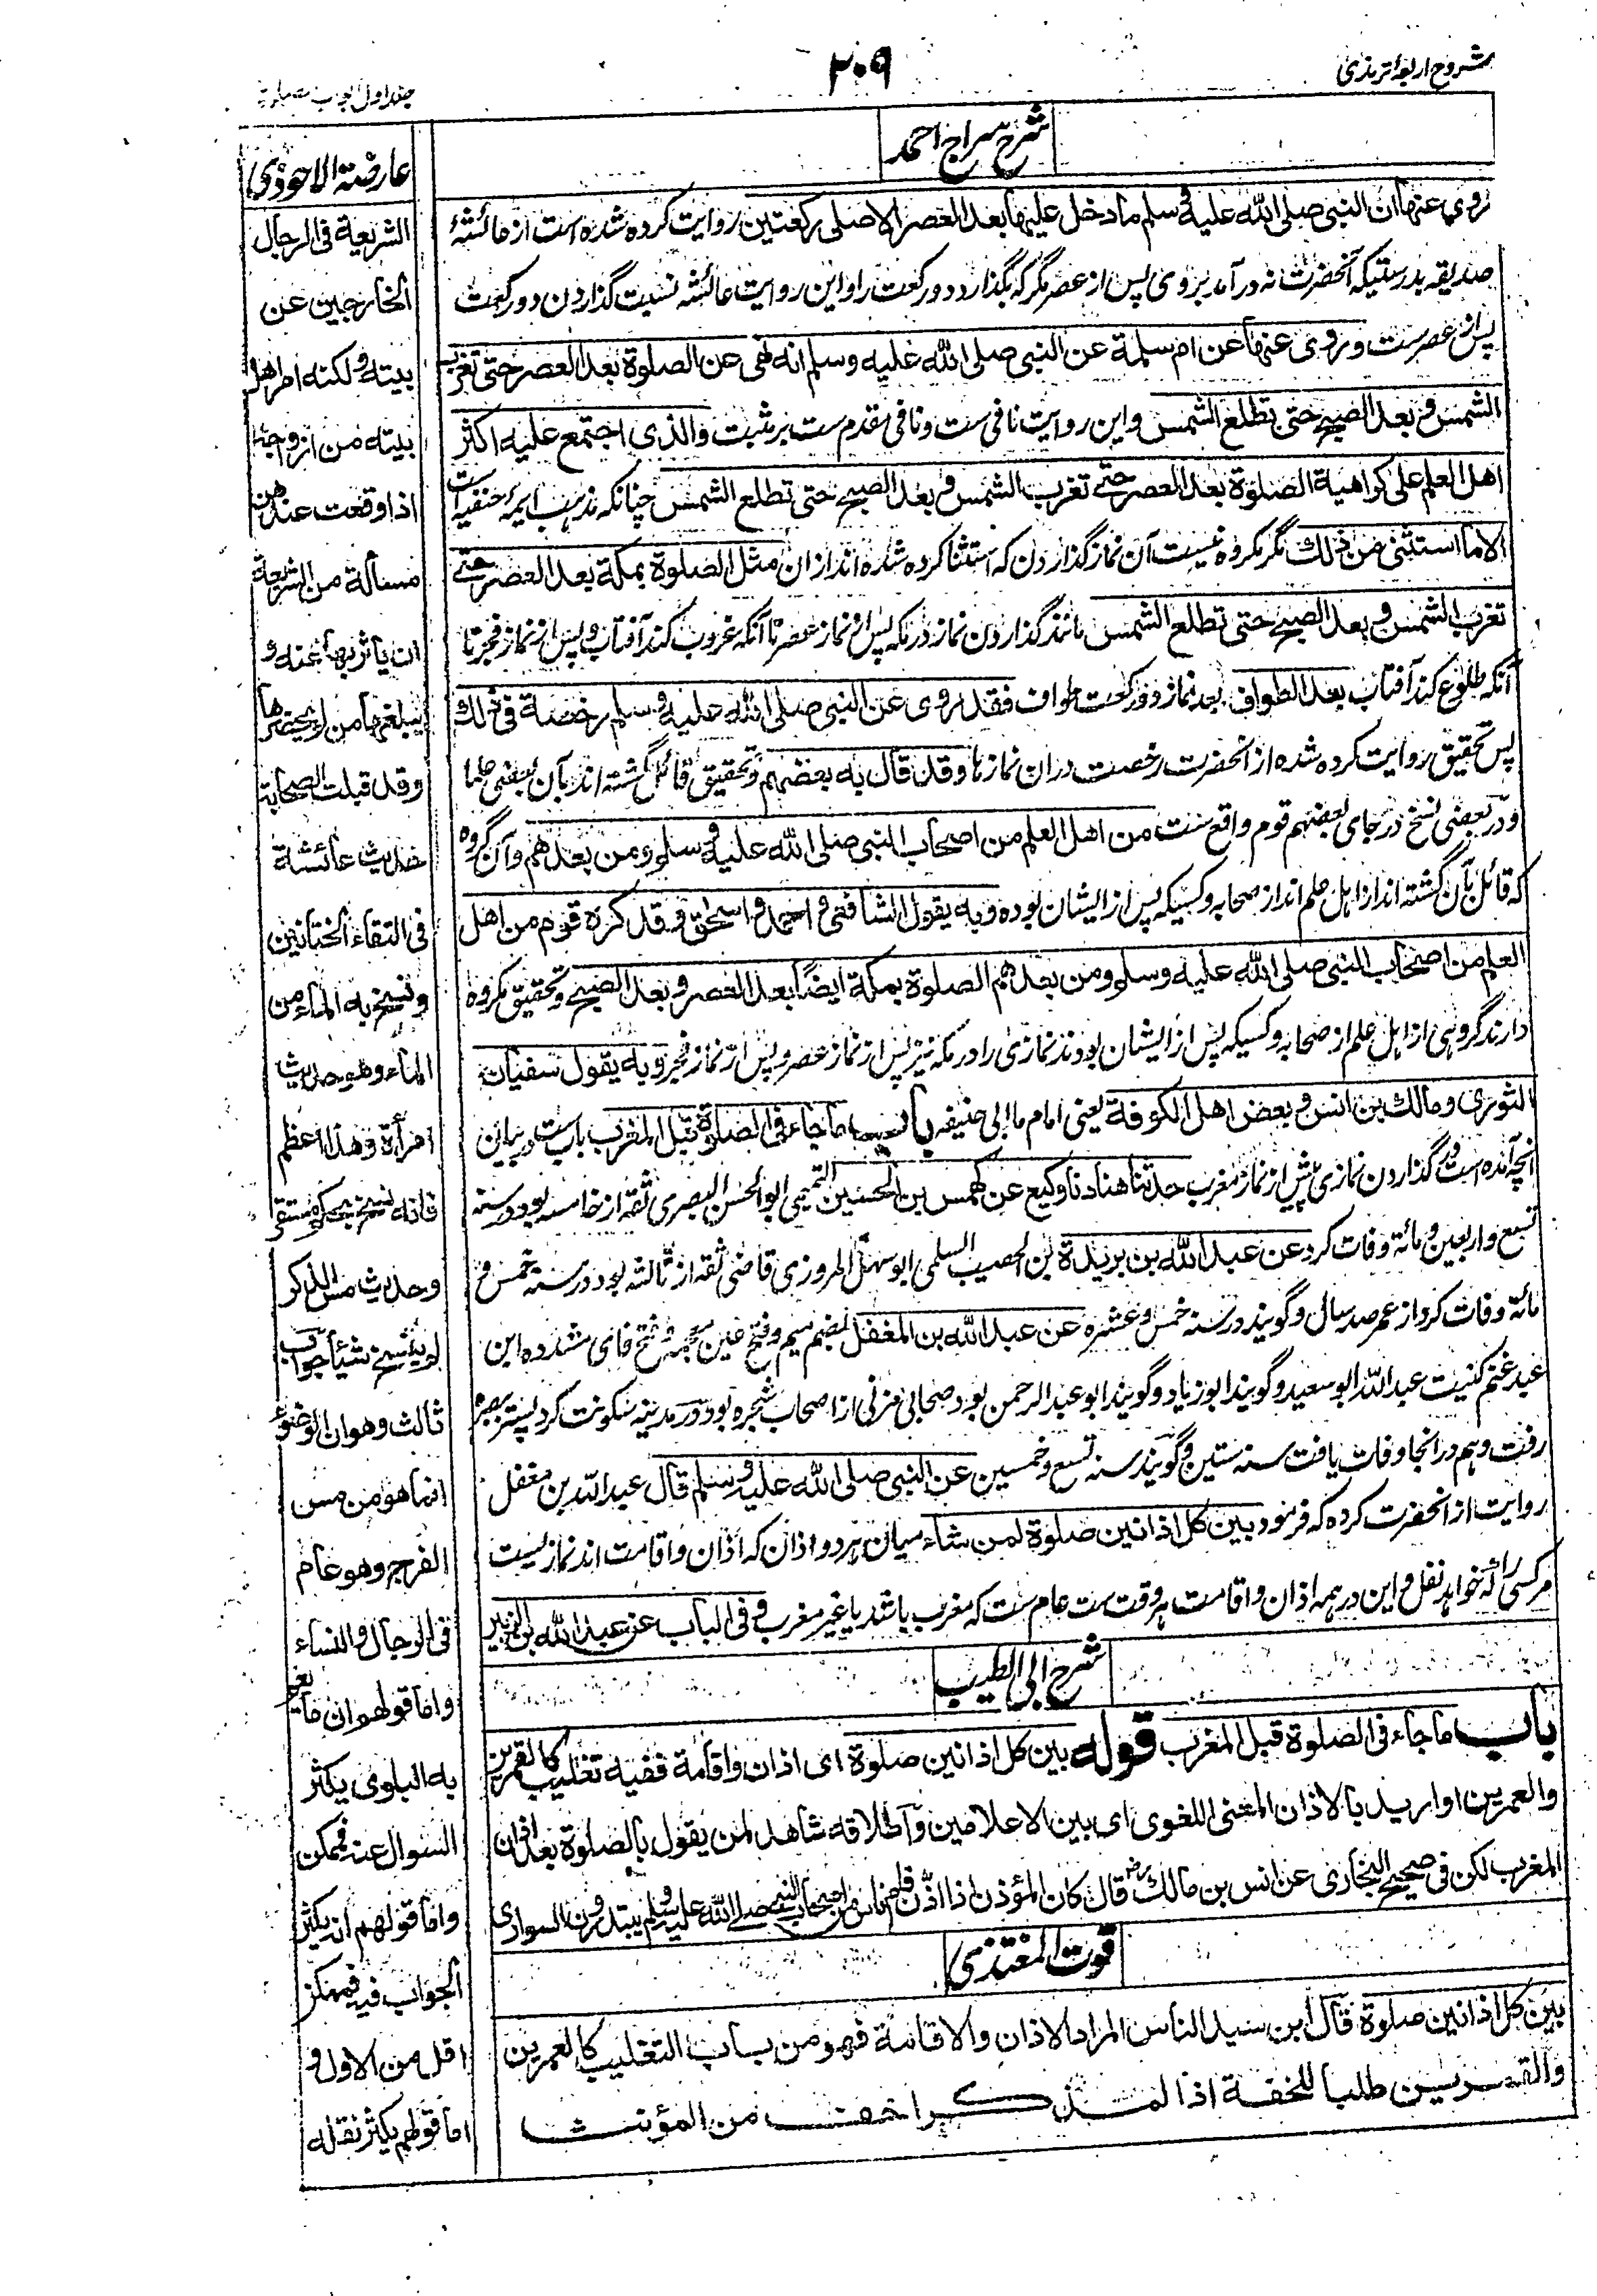 شروح اربعۀ ترمذی
۲۰۹
جلد اول ابواب
شرح سراج احمد
روی عنها ان النبی صلی الله علیه وسلم ما دخل علیها بعد العصر الا صلی رکعتین روایت کرده شده است از عائشۀ
صدیقه بدرستیکه آنحضرت نه درآمد بروی پس از عصر مگر که بگذارد دو رکعت را و این روایت عائشه نسبت گذاردن دو رکعت
پس از عصر ست وروی عنها عن ام سلمة عن النبی صلی الله علیه وسلم انه نهی عن الصلوة بعد العصر حتی تغرب
الشمس و بعد الصبح حتی تطلع الشمس و این روایت نافی ست و نافی مقدم ست بر مثبت والذی اجتمع علیه اکثر
اهل العلم علی کراهیة الصلوة بعد العصر حتی تغرب الشمس و بعد الصبح حتی تطلع الشمس چنانکه مذهب ایمۀ حنفیه است
الا ما استثنی من ذلك مگر مکروه نیست آن نماز گذاردن که استثنا کرده شده اند ازان مثل الصلوة بمکة بعد العصر حتی
تغرب الشمس و بعد الصبح حتی تطلع الشمس مانند گذاردن نماز در مکه پس از نماز عصر تا آنکه غروب کند آفتاب و پس از نماز فجر تا
آنکه طلوع کند آفتاب بعد الطواف بعد نماز دو رکعت طواف فقد روی عن النبی صلی الله علیه وسلم رخصة فی ذلك
پس تحقیق روایت کرده شده از آنحضرت رخصت دران نمازها وقد قال به بعضهم و تحقیق قائل گشته اند بآن بعضی علما
و در بعضی نسخ در جای بعضهم قوم واقع ست من اهل العلم من اصحاب النبی صلی الله علیه وسلم ومن بعدهم و آن گروه
که قائل بآن گشته اند از اهل علم اند از صحابه و کسیکه پس از ایشان بوده وبه یقول الشافعی و احمد و اسحق وقد کره قوم من اهل
العلم من اصحاب النبی صلی الله علیه وسلم ومن بعدهم الصلوة بمکة ایضاً بعد العصر و بعد الصبح و تحقیق مکروه
دارند گروهی از اهل علم از صحابه و کسیکه پس از ایشان بودند نمازی را در مکه نیز پس از نماز عصر و پس از نماز فجر وبه یقول سفیان
الثوری ومالك بن انس و بعض اهل الکوفة یعنی امام ما ابی حنیفه باب ما جاء فی الصلوة قبل المغرب باب ست در بیان
آنچه آمده است در گذاردن نمازی پیش از نماز مغرب حدثنا هناد نا وکیع عن کهمس بن الحسین التمیمی ابو الحسن البصری ثقه از خامسه بود در سنه
تسع و اربعین و مائة وفات کرد عن عبد الله بن بریدة بن الحصیب السلمی ابو سهل المروزی قاضی ثقه از ثالثه بود در سنه خمس و
مائة وفات کرد از عمر صد سال و گویند در سنه خمس و عشره عن عبد الله بن المغفل بضم میم و فتح غین معجمه و فتح فای مشدده ابن
عبد غنم کنیت عبد الله ابو سعید و گویند ابو زیاد و گویند ابو عبد الرحمن بود صحابی مزنی از اصحاب شجره بود در مدینه سکونت کرد پستر ببصره
رفت و هم در انجا وفات یافت سنه ستین و گویند سنه تسع و خمسین عن النبی صلی الله علیه وسلم قال عبد الله بن مغفل
روایت از آنحضرت کرده که فرمود بین کل اذانین صلوة لمن شاء میان هر دو اذان که اذان و اقامت اند نماز یست
مر کسی را که خواهد نفل و این در همه اذان و اقامت هر وقت ست عام ست که مغرب باشد یا غیر مغرب و فی الباب عن عبد الله بن الزبیر
شرح ابی الطیب
باب ما جاء فی الصلوة قبل المغرب قوله بین کل اذانین صلوة ای اذان واقامة ففیه تغلیب کالقمرین
والعمرین او ارید بالاذان المعنی اللغوی ای بین الاعلامین واطلاقه شاهد لمن یقول بالصلوة بعد اذان
المغرب لکن فی صحیح البخاری عن انس بن مالك رض قال کان المؤذن اذا اذن قام ناس من اصحاب النبی صلی الله علیه وسلم یبتدرون السواری
قوت المغتذی
بین کل اذانین صلوة قال ابن سید الناس المراد الاذان والاقامة فهو من باب التغلیب کالعمرین
والقمرین طلبا للخفة اذ المذکر اخف من المؤنث
عارضة الاحوذی
الشریعة فی الرجال
الخارجین عن
بیته ولکنه امر اهل
بیته من ازواجه
اذا وقعت عندهن
مسألة من الشریعة
ان یأثر بها عنه و
یبلغنها من لم یحضرها
وقد قبلت الصحابة
حدیث عائشة
فی التقاء الختانین
ونسخ به الماء من
الماء وهو حدیث
امرأة وهذا اعظم
فانه نسخ حکم مستقر
وحدیث مس الذکر
لم ینسخ شیئا جواب
ثالث وهو ان الوضوء
انما هو من مس
الفرج وهو عام
فی الرجال والنساء
واما قولهم ان ما یعم
به البلوی یکثر
السوال عنه فممکن
واما قولهم ان یکثر
الجواب فیه فممکن
اقل من الاول و
اما قولهم یکثر نقله